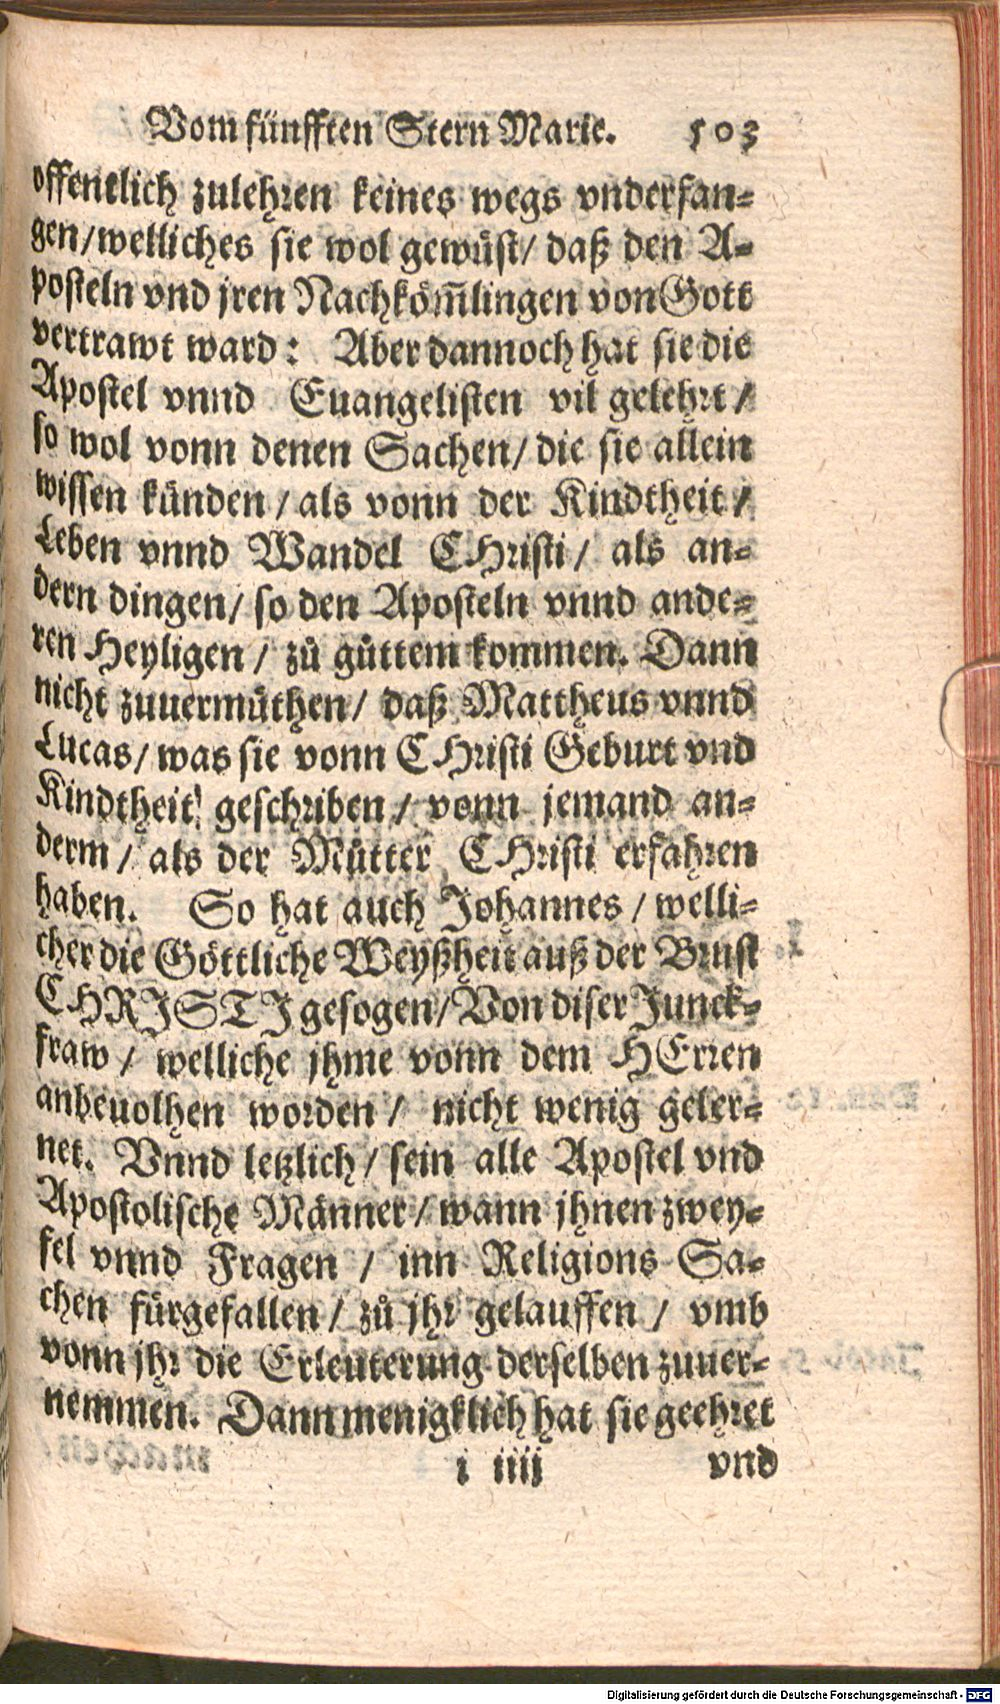 Vom fünfften Stern Marie. 503
offentlich zulehren keines wegs vnderfan⸗
gen/welliches sie wol gewüst/ daß den A⸗
posteln vnd jren Nachköm̃lingen von Gott
vertrawt ward: Aber dannoch hat sie die
Apostel vnnd Euangelisten vil gelehrt /
so wol vonn denen Sachen/ die sie allein
wissen künden / als vonn der Kindtheit /
Leben vnnd Wandel CHristi / als an⸗
dern dingen/ so den Aposteln vnnd ande⸗
ren Heyligen / zů gůttem kommen. Dann
nicht zuuermůthen/ daß Mattheus vnnd
Lucas/ was sie vonn CHristi Geburt vnd
Kindtheit geschriben / vonn jemand an⸗
derm / als der Můtter CHristi erfahren
haben. So hat auch Johannes / welli⸗
cher die Göttliche Weyßheit auß der Brust
CHRJSTJ gesogen/ Von diser Junck⸗
fraw / welliche jhme vonn dem HErren
anbeuolhen worden / nicht wenig geler⸗
net. Vnnd letzlich / sein alle Apostel vnd
Apostolische Männer / wann jhnen zwey⸗
fel vnnd Fragen / inn Religions Sa⸗
chen fürgefallen / zů jhr gelauffen / vmb
vonn jhr die Erleuterung derselben zuuer⸗
nemmen. Dann menigklich hat sie geehret
i iiij vnd
Digitalisierung gefördert durch die Deutsche Forschungsgemeinschaft - DFG